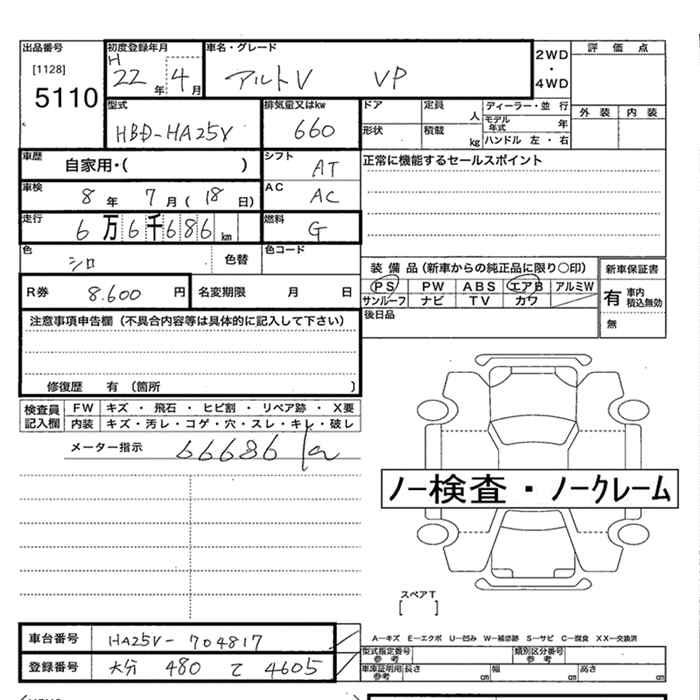 出品番号 初度登録年月 車名・グレード 2WD・4WD 評価点
[1128]
5110
H 22年 4月 アルトV VP
外装 内装
型式 排気量又はkw ドア 定員 人 ディーラー・並行
HBD-HA25V 660 形状 積載 kg モデル年式 年
ハンドル 左・右
車歴 自家用・( ) シフト AT 正常に機能するセールスポイント
車検 8年 7月(18日) AC AC
走行 6万6千686km 燃料 G
色 シロ 色替 色コード
装備品(新車からの純正品に限り○印) 新車保証書
PS PW ABS エアB アルミW 有 車内積込無効
サンルーフ ナビ TV カワ 無
R券 8.600円 名変期限 月 日
後日品
注意事項申告欄(不具合内容等は具体的に記入して下さい)
修復歴 有(箇所 )
検査員記入欄 FW キズ・飛石・ヒビ割・リペア跡・X要
内装 キズ・汚レ・コゲ・穴・スレ・キレ・破レ
メーター指示 66686 km
ノー検査・ノークレーム
スペアT
[ ]
車台番号 HA25V-704817
A-キズ E-エクボ U-凹み W-補修跡 S-サビ C-腐食 XX-交換済
型式指定番号 参考 類別区分番号 参考
登録番号 大分 480 て 4605
車庫証明用 参考 長さ cm 幅 cm 高さ cm